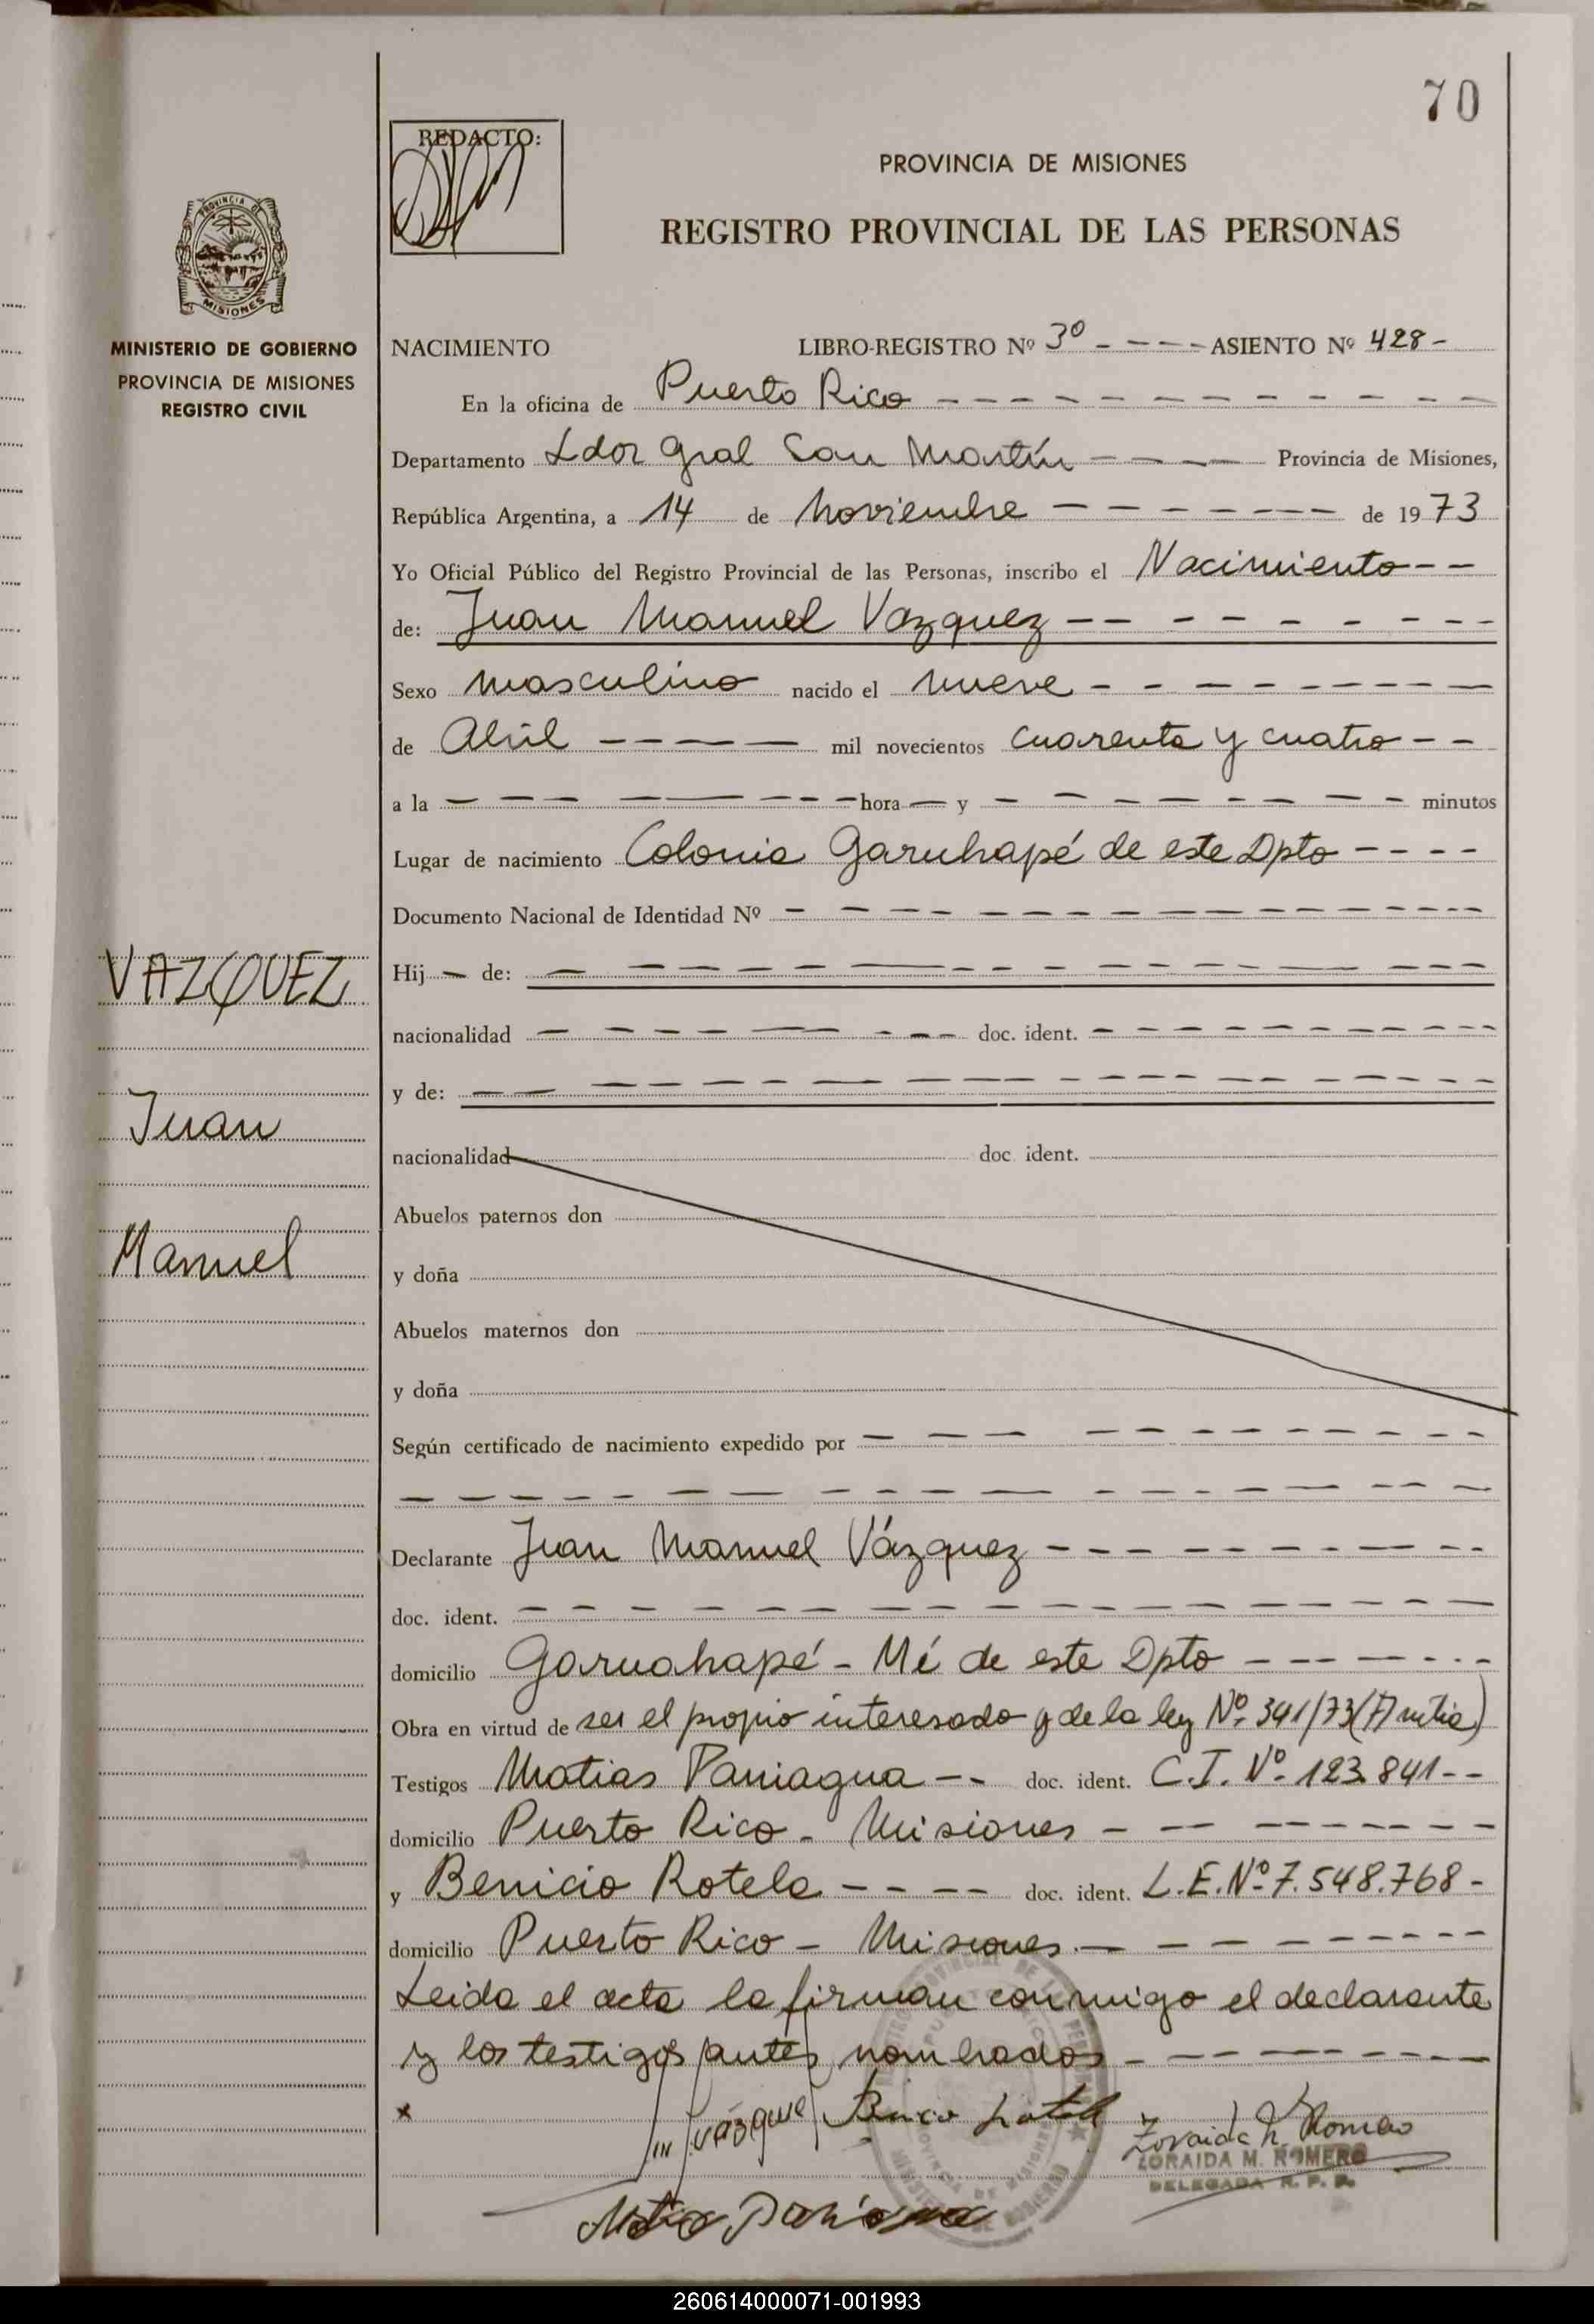 70
REDACTO:
PROVINCIA DE MISIONES
REGISTRO PROVINCIAL DE LAS PERSONAS
PROVINCIA DE
MISIONES
MINISTERIO DE GOBIERNO
PROVINCIA DE MISIONES
REGISTRO CIVIL
NACIMIENTO LIBRO-REGISTRO Nº 3º - - - - ASIENTO Nº 428 -
En la oficina de Puerto Rico
Departamento Ldor Gral San Martín Provincia de Misiones,
República Argentina, a 14 de Noviembre de 1973
Yo Oficial Público del Registro Provincial de las Personas, inscribo el Nacimiento
de: Juan Manuel Vazquez
Sexo masculino nacido el nueve
de Abril mil novecientos cuarenta y cuatro
a la hora y minutos
Lugar de nacimiento Colonia Garuhapé de este Dpto
Documento Nacional de Identidad Nº
VAZQUEZ
Hij de:
nacionalidad doc. ident.
y de:
Juan
nacionalidad doc. ident.
Abuelos paternos don
Manuel
y doña
Abuelos maternos don
y doña
Según certificado de nacimiento expedido por
Declarante Juan Manuel Vázquez
doc. ident.
domicilio Garuahapé - Mí de este Dpto
Obra en virtud de ser el propio interesado y de la ley Nº 341/73
Testigos Matias Paniagua doc. ident. C.I. Nº 123.841
domicilio Puerto Rico - Misiones
y Benicio Rotela doc. ident. L.E. Nº 7.548.768 -
domicilio Puerto Rico - Misiones
Leida el acta la firman conmigo el declarante
y los testigos antes nombrados
x
ZORAIDA M. ROMERO
DELEGADA R. P. P.
260614000071-001993